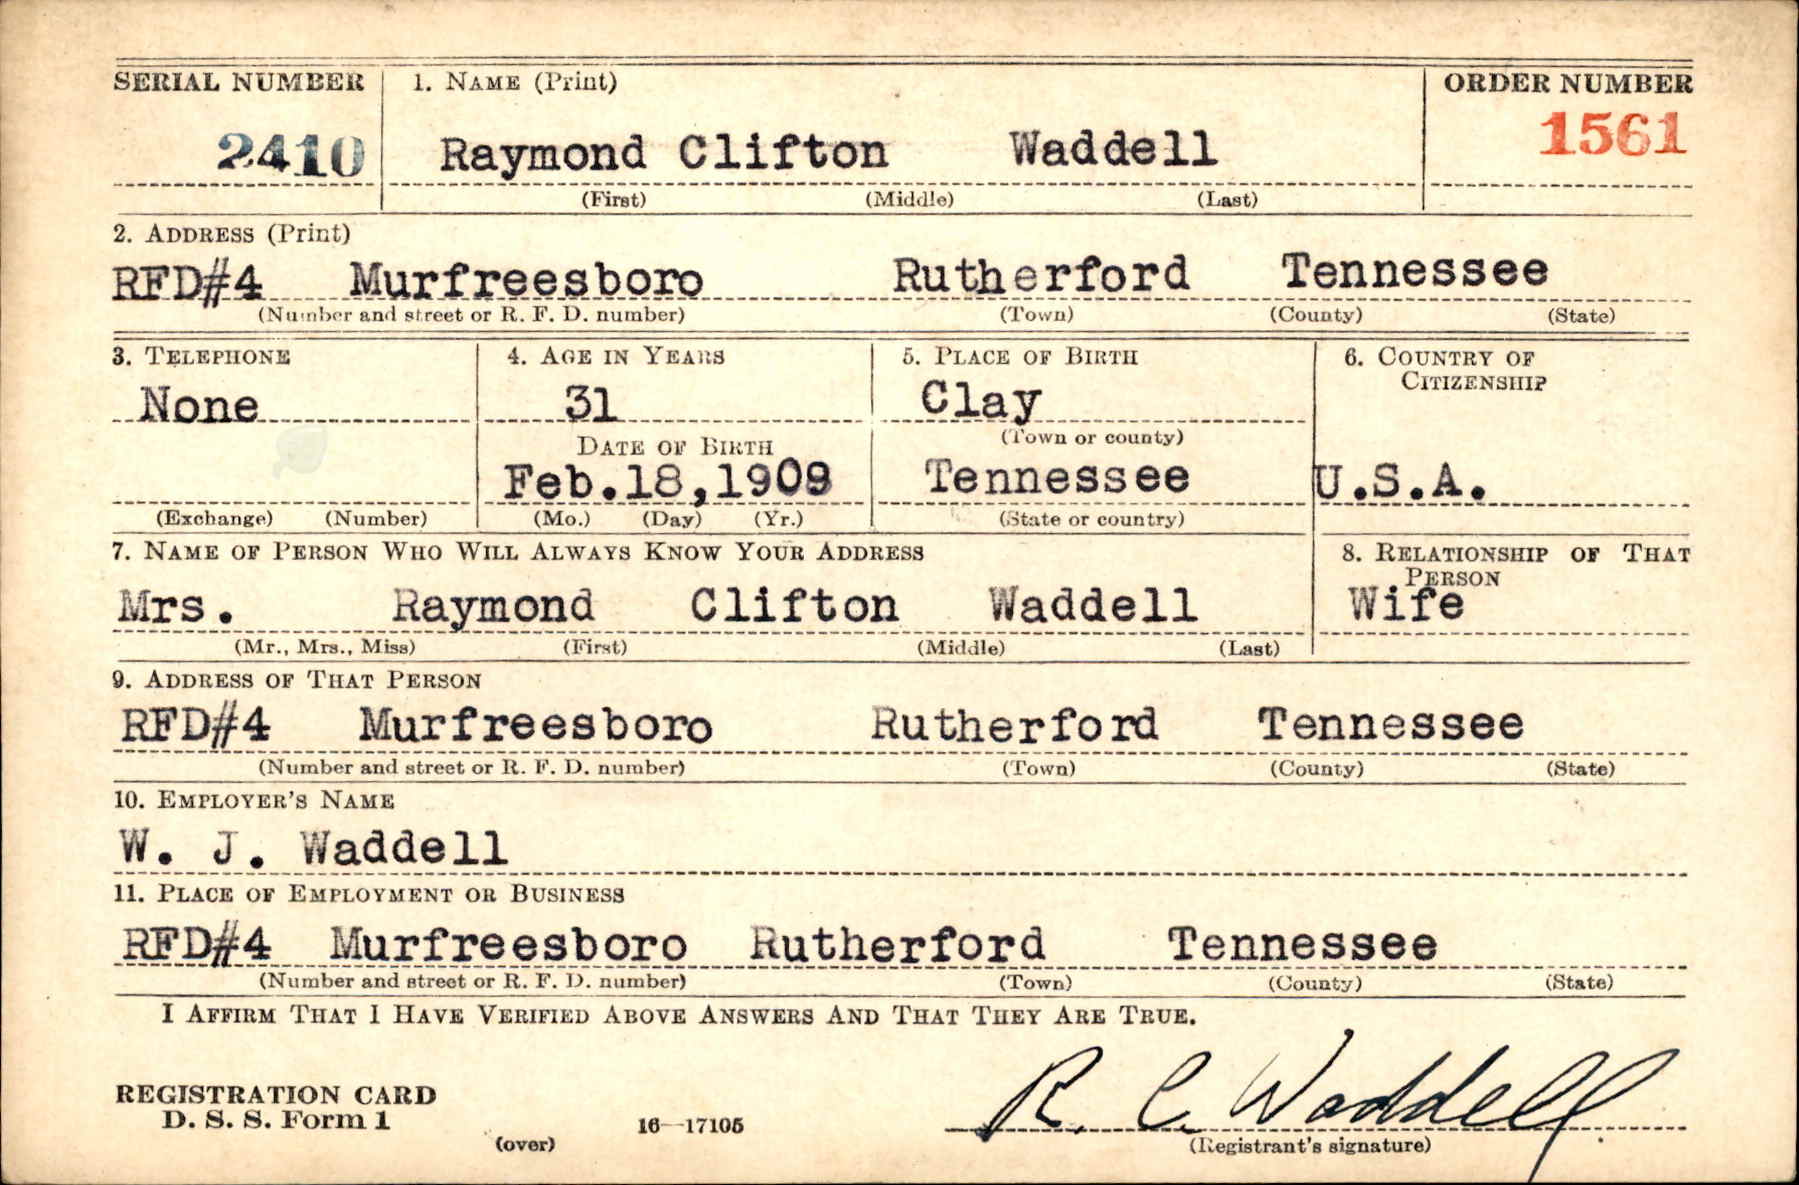 SERIAL NUMBER 1. NAME (Print) ORDER NUMBER
2410 Raymond Clifton Waddell 1561
(First) (Middle) (Last)
2. ADDRESS (Print)
RFD#4 Murfreesboro Rutherford Tennessee
(Number and street or R. F. D. number) (Town) (County) (State)
3. TELEPHONE 4. AGE IN YEARS 5. PLACE OF BIRTH 6. COUNTRY OF
CITIZENSHIP
None 31 Clay
(Town or county)
DATE OF BIRTH
Feb.18,1909 Tennessee U.S.A.
(Exchange) (Number) (Mo.) (Day) (Yr.) (State or country)
7. NAME OF PERSON WHO WILL ALWAYS KNOW YOUR ADDRESS 8. RELATIONSHIP OF THAT
PERSON
Mrs. Raymond Clifton Waddell Wife
(Mr., Mrs., Miss) (First) (Middle) (Last)
9. ADDRESS OF THAT PERSON
RFD#4 Murfreesboro Rutherford Tennessee
(Number and street or R. F. D. number) (Town) (County) (State)
10. EMPLOYER'S NAME
W. J. Waddell
11. PLACE OF EMPLOYMENT OR BUSINESS
RFD#4 Murfreesboro Rutherford Tennessee
(Number and street or R. F. D. number) (Town) (County) (State)
I AFFIRM THAT I HAVE VERIFIED ABOVE ANSWERS AND THAT THEY ARE TRUE.
REGISTRATION CARD
D. S. S. Form 1 16—17105 R. C. Waddell
(over) (Registrant's signature)